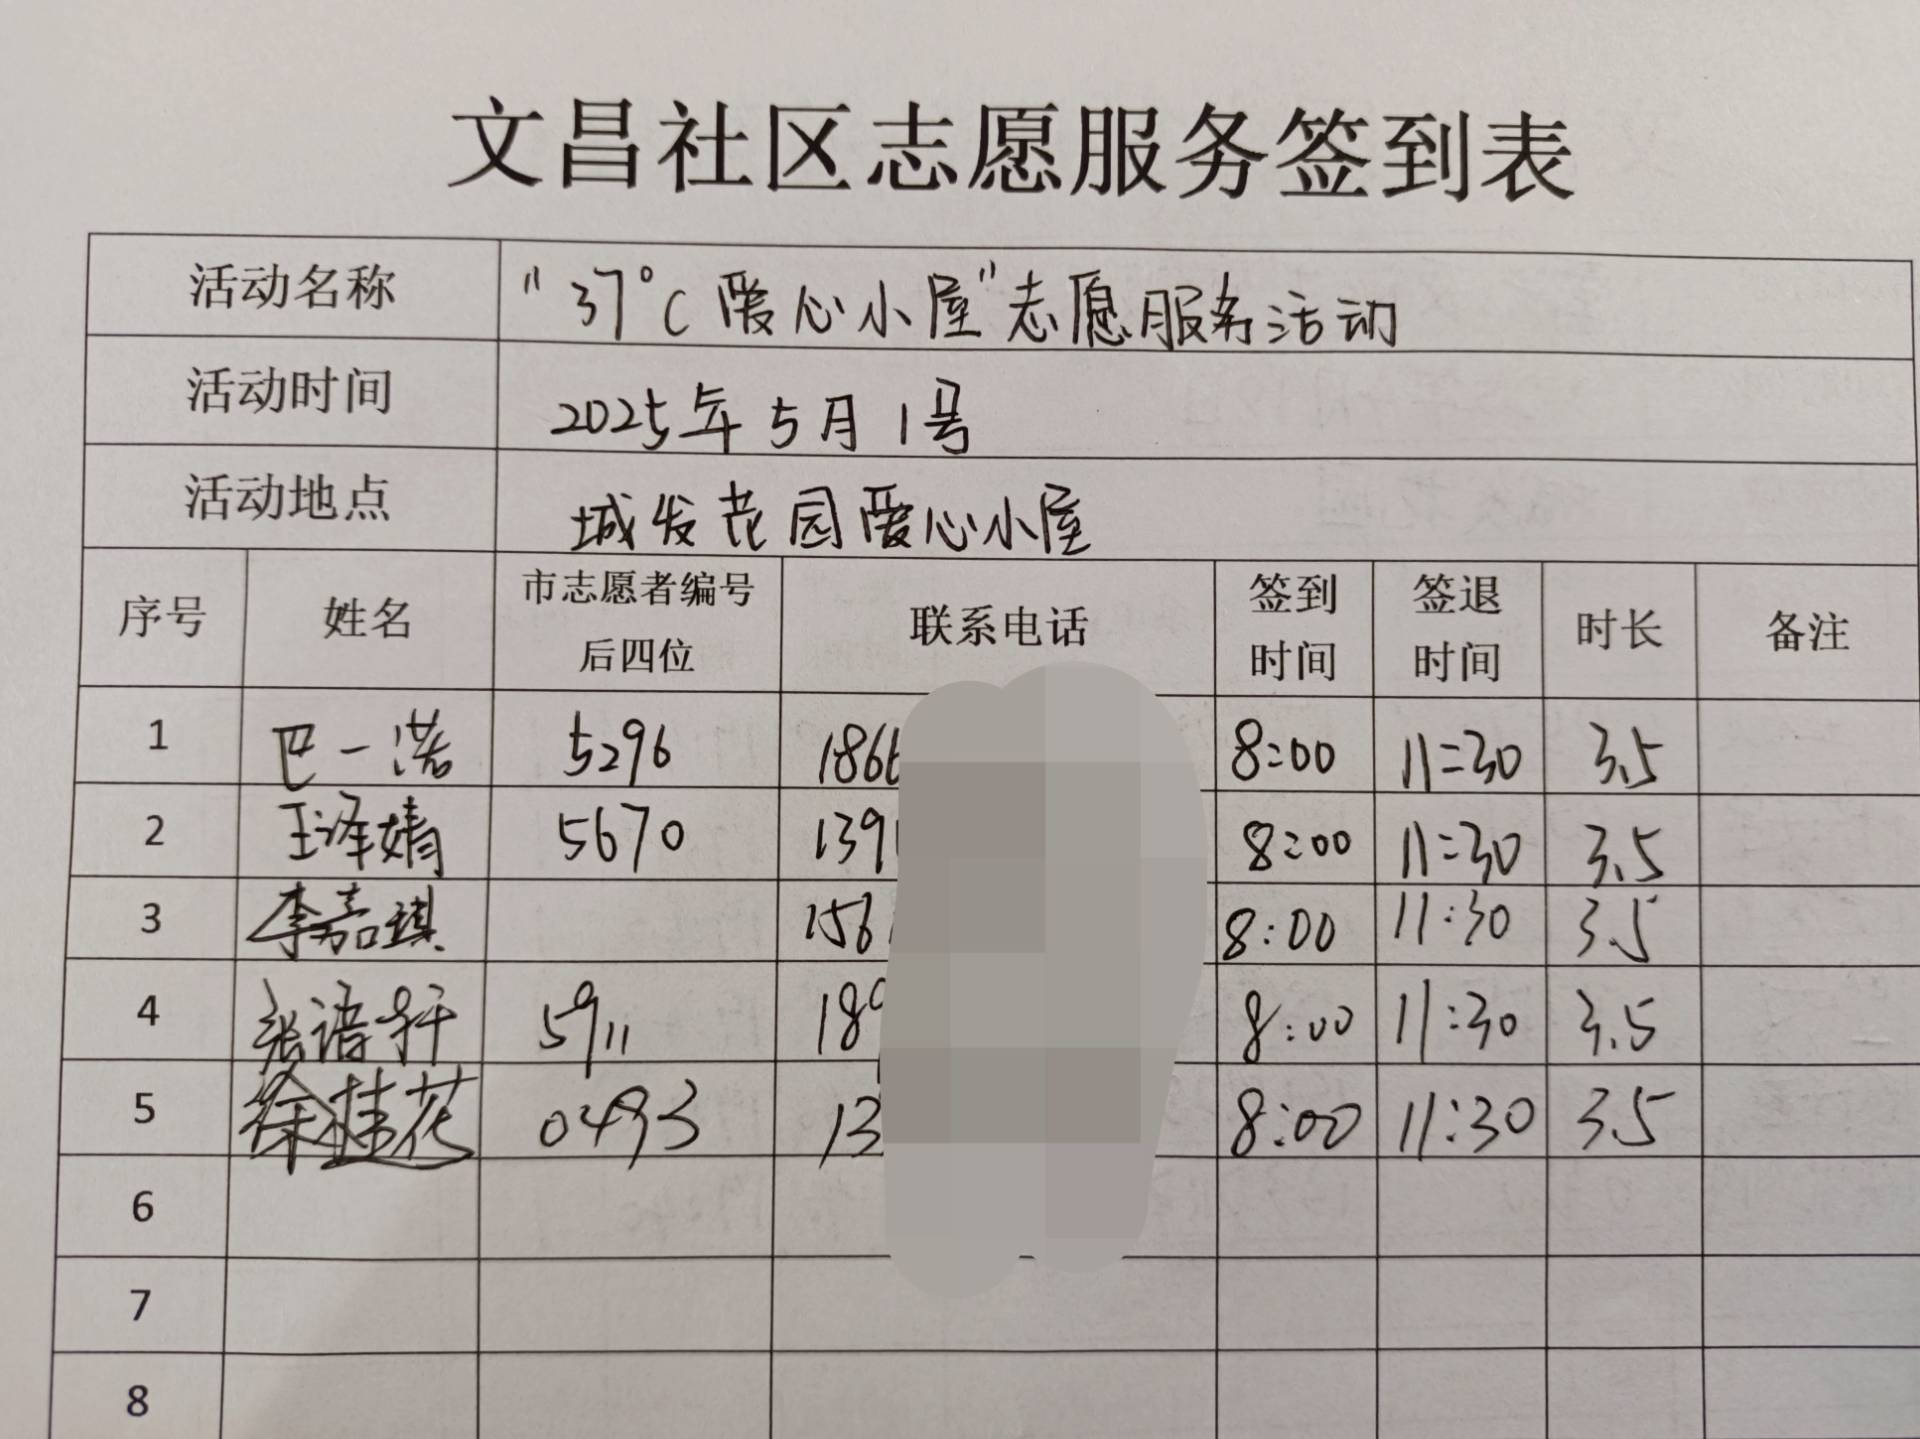 文昌社区志愿服务签到表
活动名称 "37°C暖心小屋"志愿服务活动
活动时间 2025年5月1号
活动地点 城发花园暖心小屋
序号 姓名 市志愿者编号后四位 联系电话 签到时间 签退时间 时长 备注
1 巴一诺 5296 186 8:00 11:30 3.5
2 王泽婧 5670 139 8:00 11:30 3.5
3 李嘉琪 156 8:00 11:30 3.5
4 张语轩 5911 18 8:00 11:30 3.5
5 徐桂花 0493 13 8:00 11:30 3.5
6
7
8